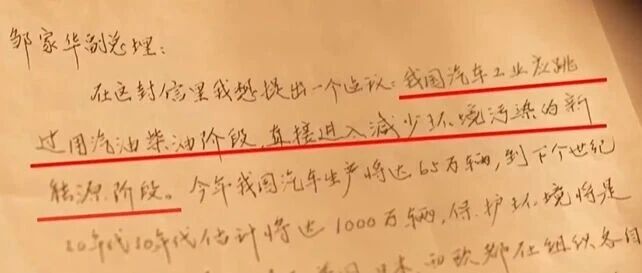 邹家华副总理:
在这封信里我想提出一个建议:我国汽车工业应跳
过用汽油柴油阶段,直接进入减少环境污染的新
能源阶段。今年我国汽车生产将达65万辆,到下个世纪
10年代20年代估计将达1000万辆,保护环境将是
日本和欧都在组织各自